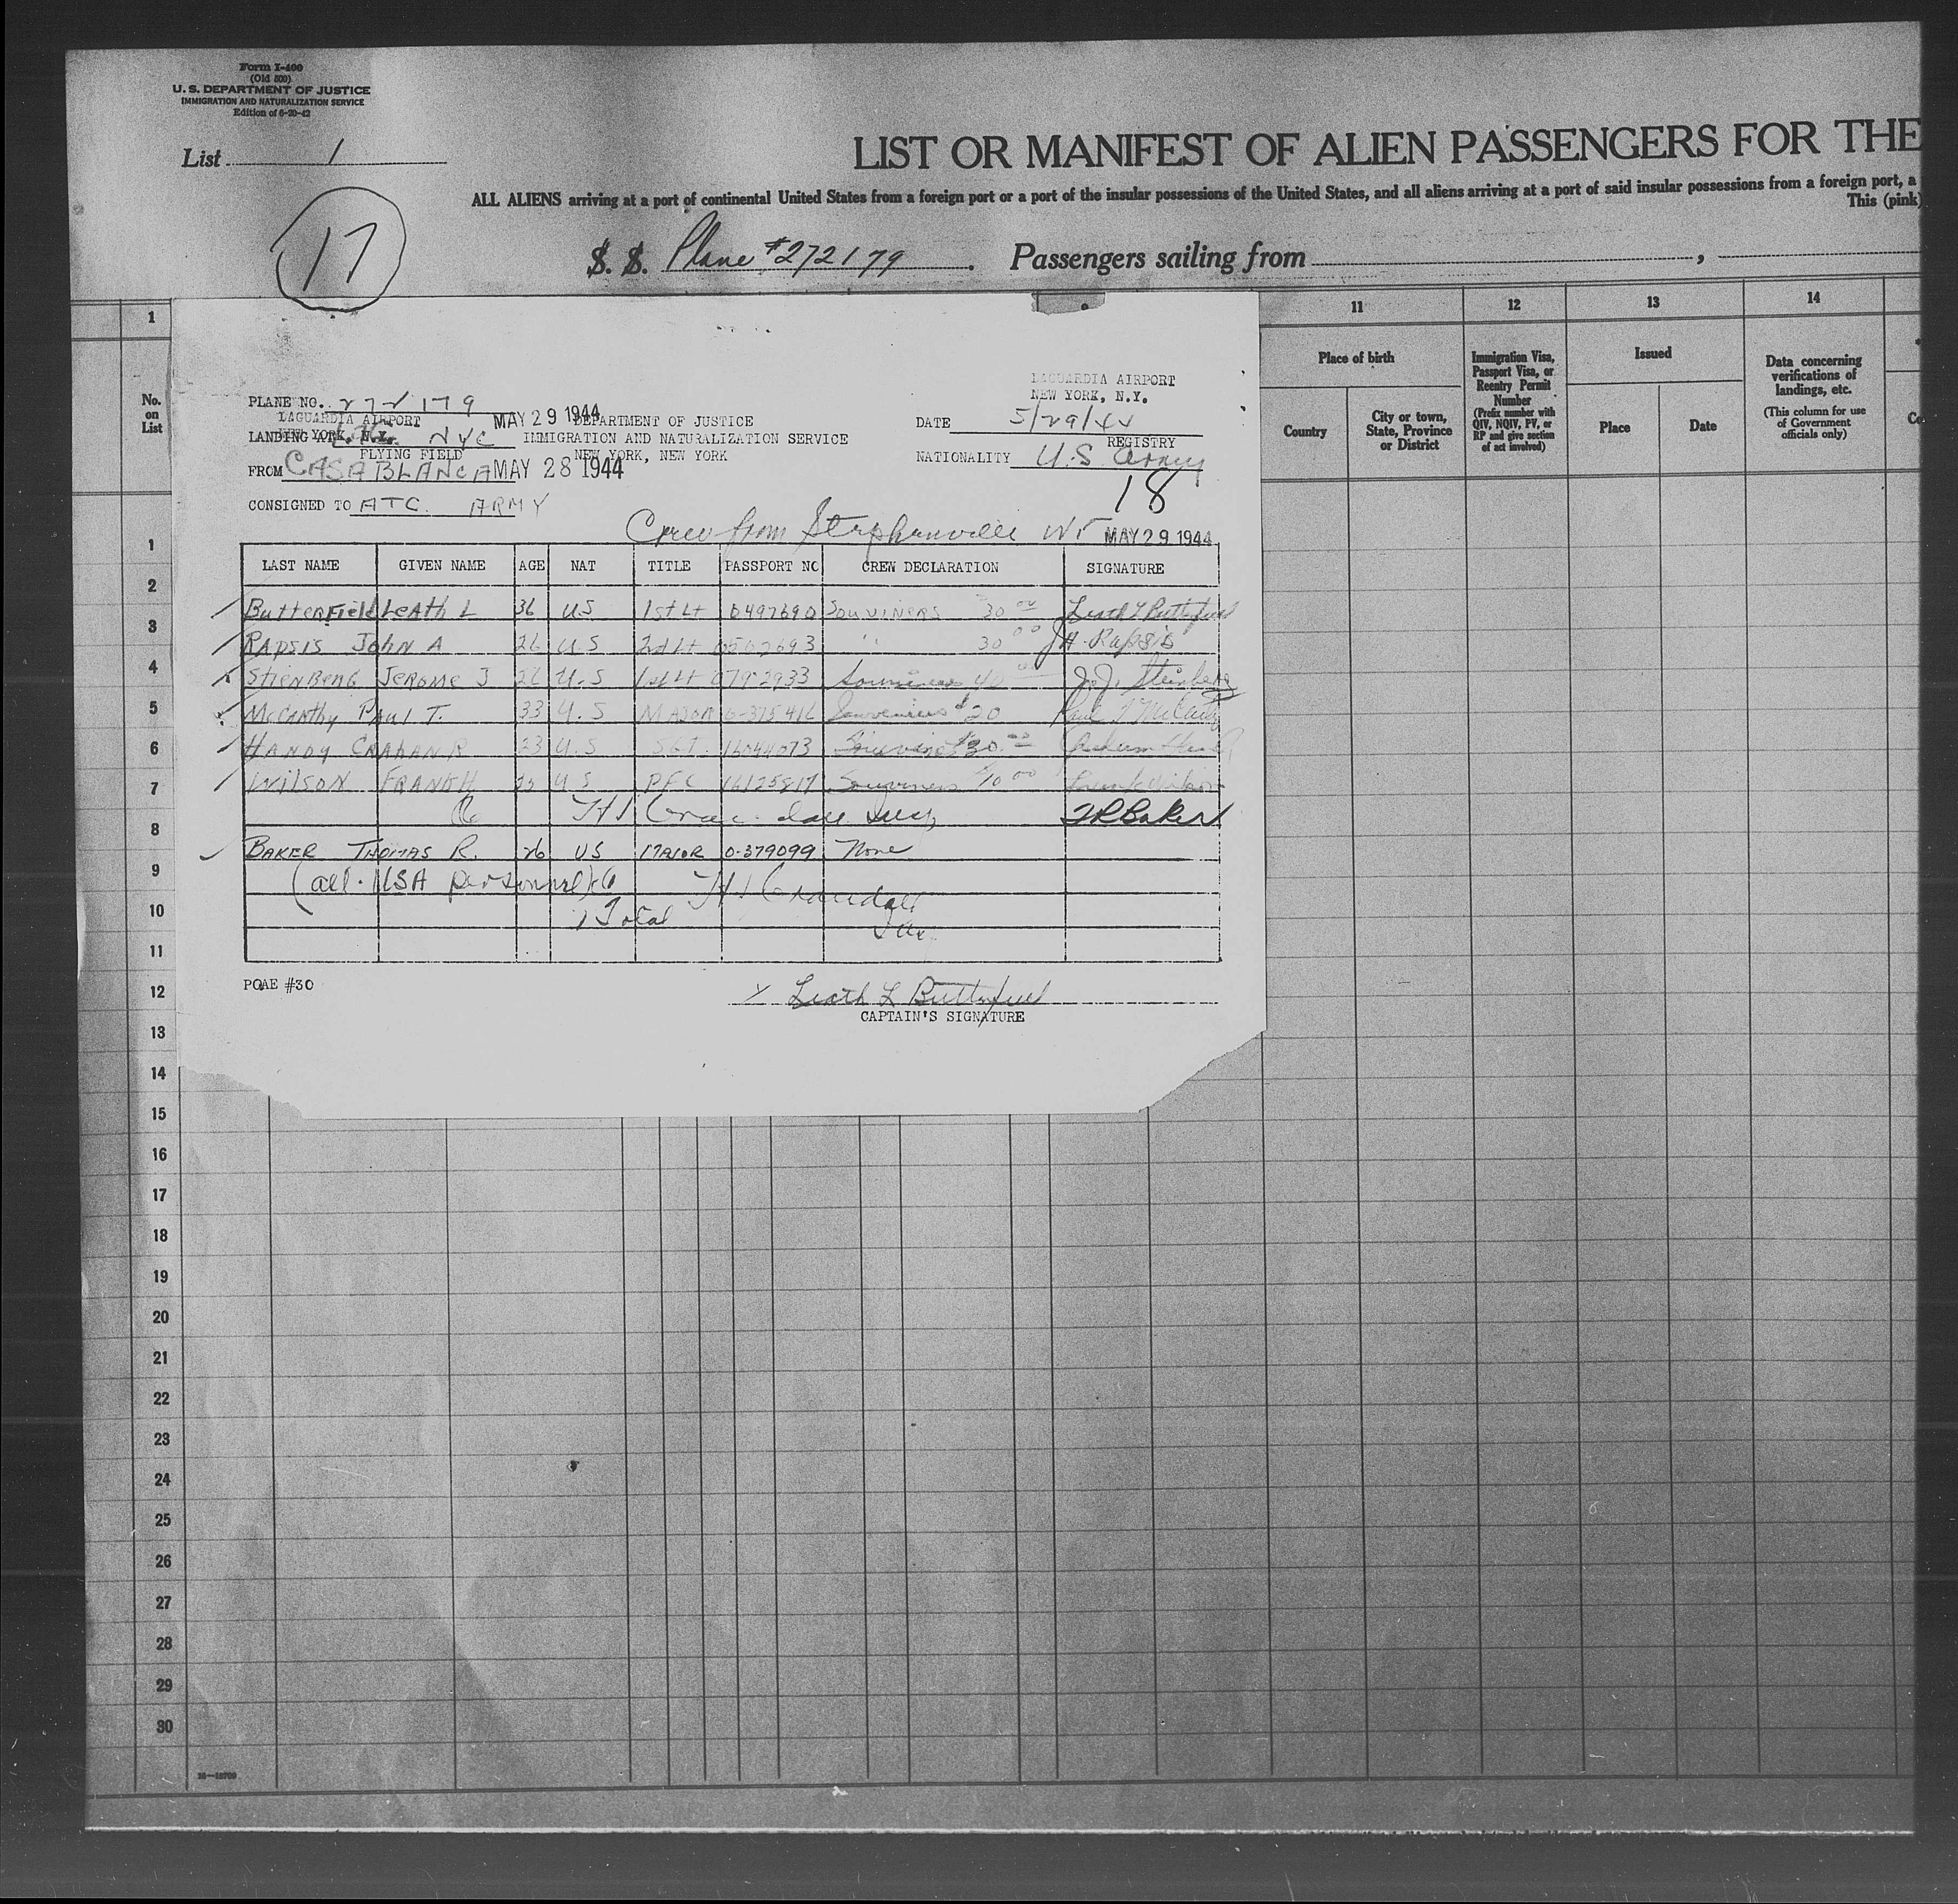 Form I-400
(Old 500)
U. S. DEPARTMENT OF JUSTICE
IMMIGRATION AND NATURALIZATION SERVICE
Edition of 6-20-42
List 1
LIST OR MANIFEST OF ALIEN PASSENGERS FOR THE
ALL ALIENS arriving at a port of continental United States from a foreign port or a port of the insular possessions of the United States, and all aliens arriving at a port of said insular possessions from a foreign port, a
This (pink)
17
S. S. Plane #272179. Passengers sailing from ,
1 11 12 13 14
No. on List
Place of birth
Country
City or town, State, Province or District
Immigration Visa, Passport Visa, or Reentry Permit Number
(Prefix number with QIV, NQIV, PV, or RP and give section of act involved)
Issued
Place
Date
Data concerning verifications of landings, etc.
(This column for use of Government officials only)
Co
LAGUARDIA AIRPORT
NEW YORK, N.Y.
PLANE NO. 272179
LAGUARDIA AIRPORT MAY 29 1944 DEPARTMENT OF JUSTICE DATE 5/29/44
LANDING NYC IMMIGRATION AND NATURALIZATION SERVICE REGISTRY
NEW YORK, N.Y.
FLYING FIELD NEW YORK, NEW YORK NATIONALITY U.S. Army
FROM CASABLANCA MAY 28 1944
18
CONSIGNED TO ATC. ARMY
Crew from Stephenville MAY 29 1944
LAST NAME GIVEN NAME AGE NAT TITLE PASSPORT NO CREW DECLARATION SIGNATURE
ButterField Leath L 36 U.S 1st Lt 0497690 Souviners 30 00 Leath L Butterfield
Rapsis John A 26 U.S 2nd Lt 0562693 " 30 00 J A. Rapsis
Stienberg Jerome J 26 U.S 1st Lt 0792933 Souvineers 40 00 J. J. Steinberg
McCarthy Paul T. 33 U.S Major 0-375416 Souveniers $20 Paul T McCarthy
Handy Graham R 23 U.S SGT. 16044073 $30.00
Wilson Frank H U S PFC 16125817 Souviners $10 00 Frank Wilson
H J Crandall Insp TRBaker
BAKER THOMAS R. 26 US MAJOR 0-379099 None
(all. USA personnel) H J Crandall
7 Total
POAE #30
x Leath L Butterfield
CAPTAIN'S SIGNATURE
1
2
3
4
5
6
7
8
9
10
11
12
13
14
15
16
17
18
19
20
21
22
23
24
25
26
27
28
29
30
16—18709